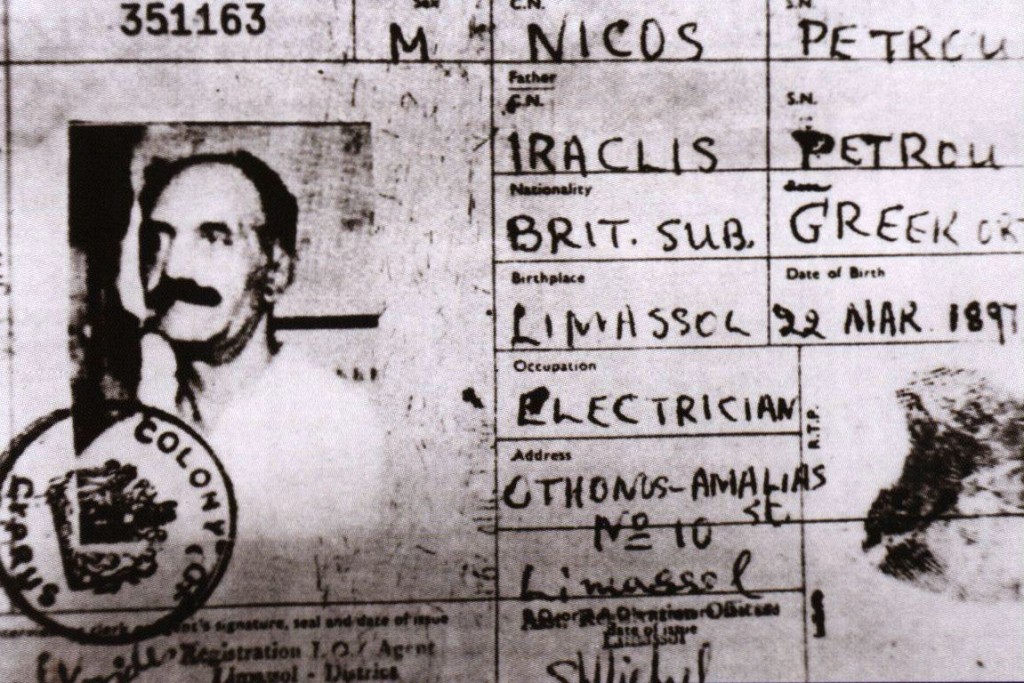 351163
Sex
M
C.N.
NICOS
S.N.
PETROU
Father
C.N.
IRACLIS
S.N.
PETROU
Nationality
BRIT. SUB.
Race
GREEK OR
Birthplace
LIMASSOL
Date of Birth
22 MAR. 1897
Occupation
ELECTRICIAN
R.T.P.
Address
OTHONOS-AMALIAS
St.
No 10
Limassol
COLONY OF
CYPRUS
clerk
signature, seal and date of issue
Registration
Agent
Limassol - District
Date of issue
Limassol